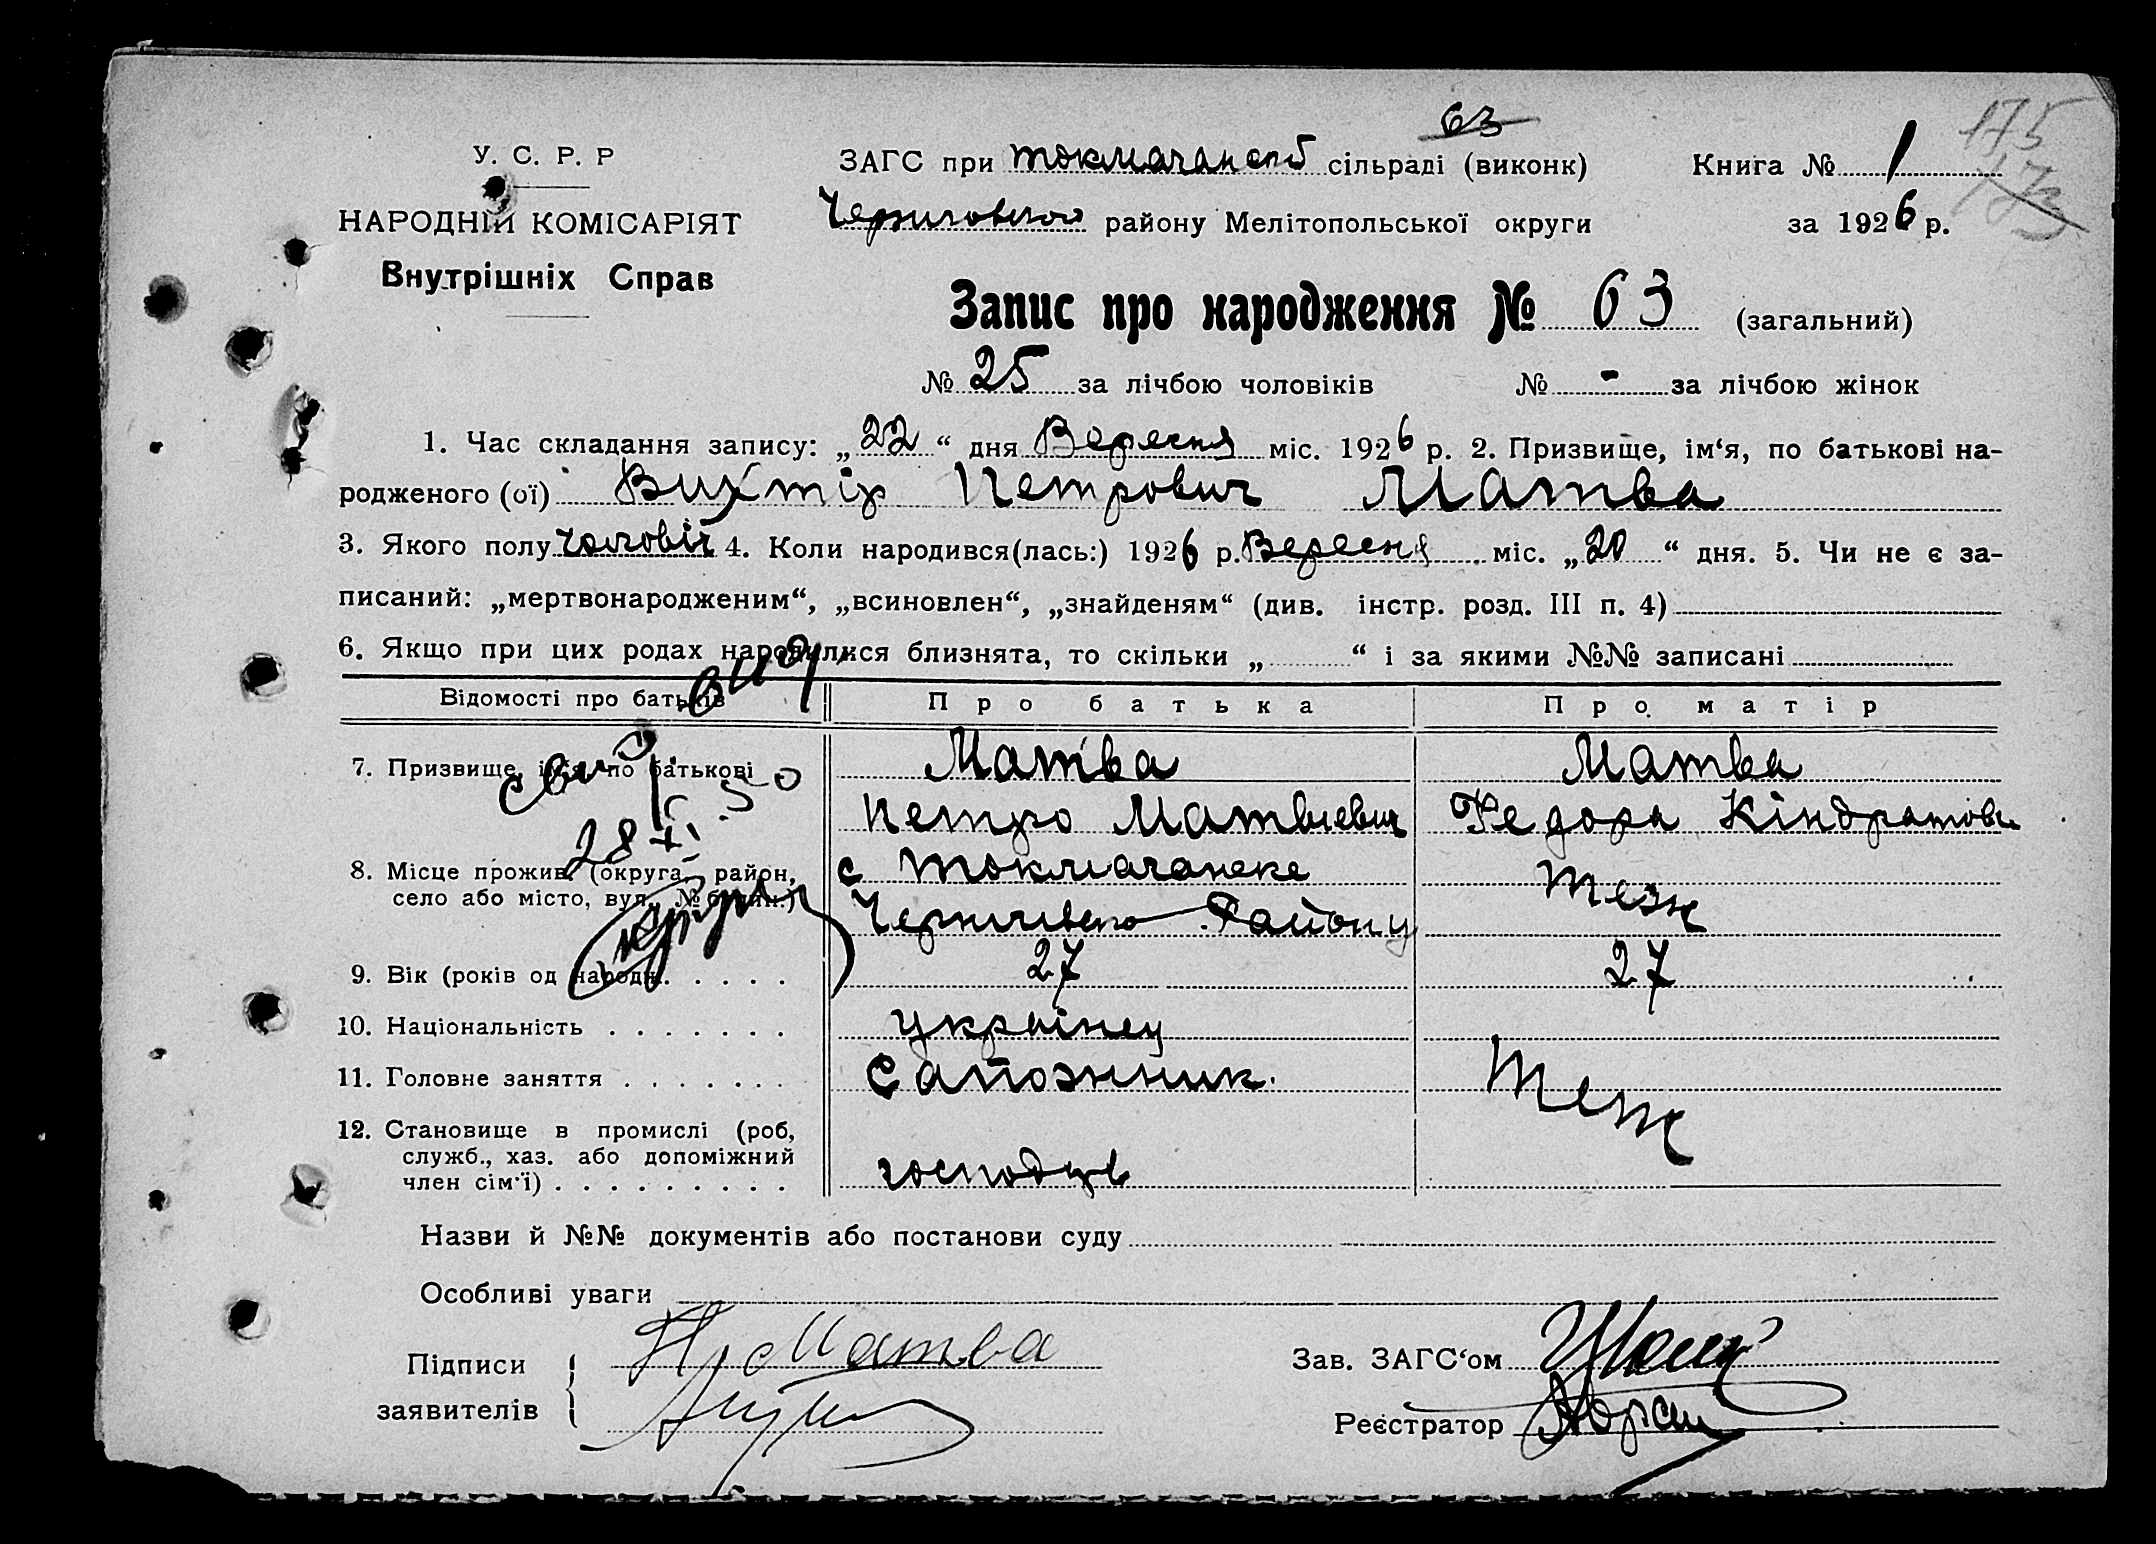 63
175
173
У. С. Р. Р
ЗАГС при Токмачанской сільраді (виконк)
Книга № 1
НАРОДНІЙ КОМІСАРІЯТ
Черниговского району Мелітопольської округи
за 1926 р.
Внутрішніх Справ
Запис про народження № 63 (загальний)
№ 25 за лічбою чоловіків № - за лічбою жінок
1. Час складання запису: „22“ дня Вересня міс. 1926 р. 2. Призвище, ім‘я, по батькові на-
родженого (ої) Вихтір Петрович Матва
3. Якого полу чоловіч 4. Коли народився(лась:) 1926 р. Вересня міс. „20“ дня. 5. Чи не є за-
писаний: „мертвонародженим“, „всиновлен“, „знайденям“ (див. інстр. розд. III п. 4)
6. Якщо при цих родах народилися близнята, то скільки „ “ і за якими №№ записані
Відомості про батьків Про батька Про матір
7. Призвище, ім‘я, по батькові Матва Матва
Петро Матвіевич Федора Кіндратовн
8. Місце прожив. (округа, район, с Токмачанске теж
село або місто, вул. № будин.) Района
9. Вік (років од народж. 27 27
10. Національність українец
11. Головне заняття Сапожник. теж
12. Становище в промислі (роб,
служб., хаз. або допоміжний
член сім‘ї)
Назви й №№ документів або постанови суду
Особливі уваги
Підписи Матва
Зав. ЗАГС‘ом
заявителів
Реєстратор